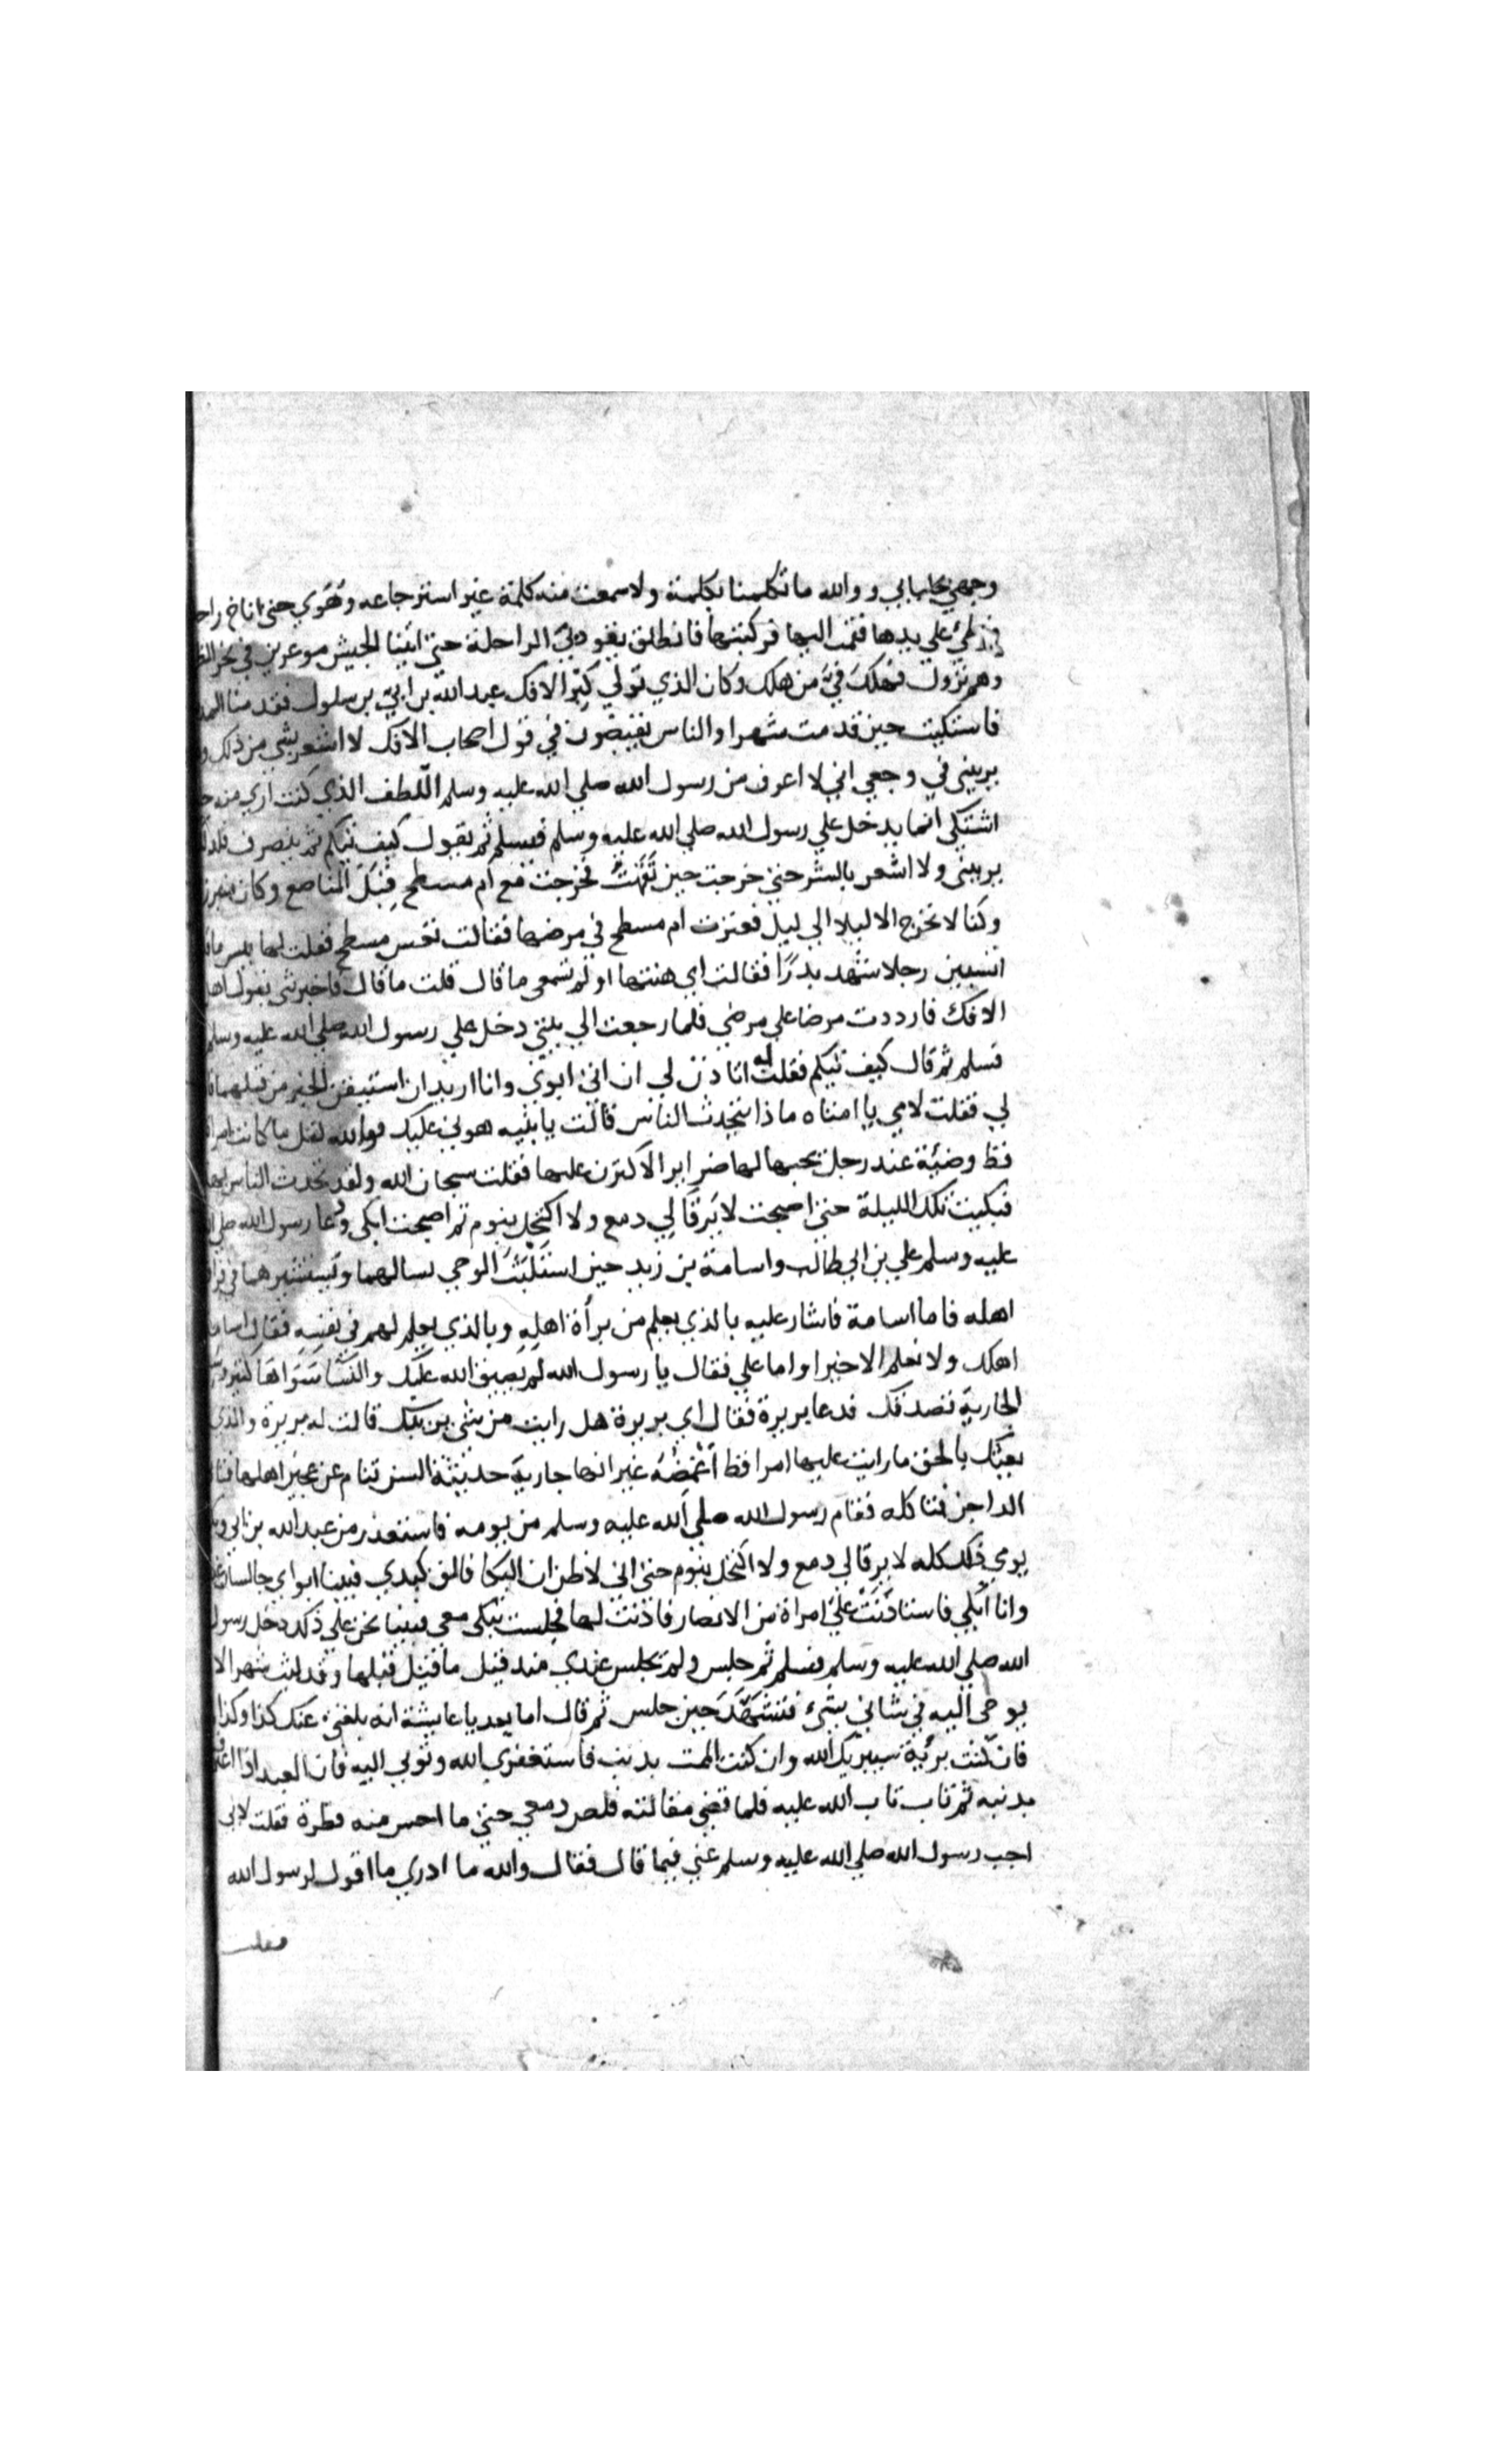 وجهي بجلبابي ووالله ما تكلمنا بكلمة ولا سمعت منه كلمة غير استرجاعه وهَوَي حتى اناخ راح
فوطئ علي يدها فقمت اليها فركبتها فانطلق يقود بي الراحلة حتي اتينا الجيش موغرين في نحر
وهم نزول فهلك فيَّ من هلك وكان الذي تولي كِبْر الافك عبد الله بن ابي بن سلول فقدمنا
فاشتكيت حين قدمت شهرا والناس يفيضون في قول اصحاب الافك لا اشعر بشي من ذلك و
يريبني في وجعي اني لا اعرف من رسول الله صلي الله عليه وسلم اللطف الذي كنت اري منه
اشتكي انما يدخل علي رسول الله صلي الله عليه وسلم فيسلم ثم يقول كيف تيكم ثم ينصرف
يريبني ولا اشعر بالشر حتي خرجت حين نَقَهْتُ فخرجت مع ام مسطح قِبَلَ المناصع وكان
وكنا لا نخرج الا ليلا الي ليل فعثرت ام مسطح في مرضها فقالت تعس مسطح فقلت لها بيس ما
اتسبين رجلا شهد بدرًا فقالت اي هنتها او لم تسمعي ما قال قلت ما قال فاخبرتني بقول اهل
الافك فازددت مرضا علي مرضي فلما رجعت الي بيتي دخل علي رسول الله صلي الله عليه وسلم
فسلم ثم قال كيف تيكم فقلت له اتاذن لي ان اتي ابوي وانا اريد ان استيقن الخبر من قبلهما
لي فقلت لامي يا امتاه ماذا يتحدث الناس قالت يا بنيه هوني عليك فوالله لقل ما كانت
قط وضئة عند رجل يحبها لها ضراير الا كثرن عليها فقلت سبحان الله ولقد تحدث الناس بهذا
فبكيت تلك الليلة حتي اصبحت لا يَرقَا لِي دمع ولا اكتحل بنوم ثم اصبحت ابكي ودعا رسول الله صلي
عليه وسلم علي بن ابي طالب واسامة بن زيد حين استلبث الوحي يسالهما ويستشيرهما في فراق
اهله فاما اسامة فاشار عليه بالذي يعلم من برأة اهلِهِ وبالذي يعلم لهم في نفسِهِ فقال اسامة
اهلك ولا نعلم الا خيرا واما علي فقال يا رسول الله لم يُضيق الله عليك والنسا سواها كثير
الجارية تصدقك فدعا بريرة فقال اي بريرة هل رايت من شي يريبك قالت له بريرة والذي
بعثك بالحق ما رايت عليها امرا قط اغمصُهُ غير انها جارية حديثة السن تنام عن عجين اهلها
الداجن فتاكله فقام رسول الله صلي الله عليه وسلم من يومه فاستعذر من عبد الله بن ابي
يومي ذلك كله لا يرقا لي دمع ولا اكتحل بنوم حتى اني لاظن ان البكا فالق كبدي فبينا ابواي جالسان
وانا ابكي فاستاذنت عليَّ امراة من الانصار فاذنت لها فجلست تبكي معي فبينا نحن علي ذلك دخل رسول
الله صلي الله عليه وسلم فسلم ثم جلس ولم يجلس عندي منذ قيل ما قيل قبلها وقد لبث شهرا لا
يوحى اليه في شاني بشيء فتشهَّدَ حين جلس ثم قال اما بعد يا عايشة انه بلغني عنك كذا وكذا
فان كنت برئية سيبريك الله وان كنت الممت بذنب فاستغفري الله وتوبي اليه فان العبد اذا اعترف
بذنبه ثم تاب تاب الله عليه فلما قضي مقالته قلص دمعي حتي ما احس منه قطرة فقلت لابي
اجب رسول الله صلي الله عليه وسلم عني فيما قال فقال والله ما ادري ما اقول لرسول الله
فقلت